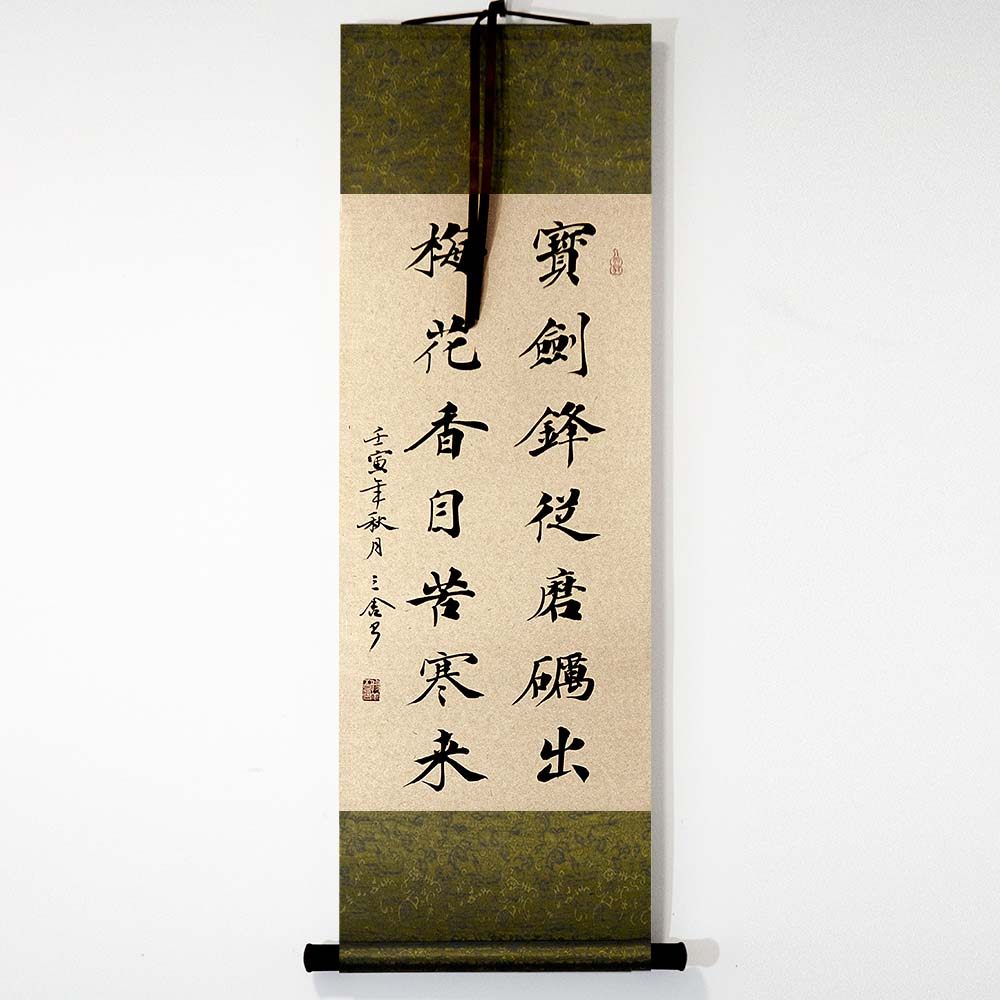 寶劍鋒從磨礪出
梅花香自苦寒来
壬寅年秋月 三舍